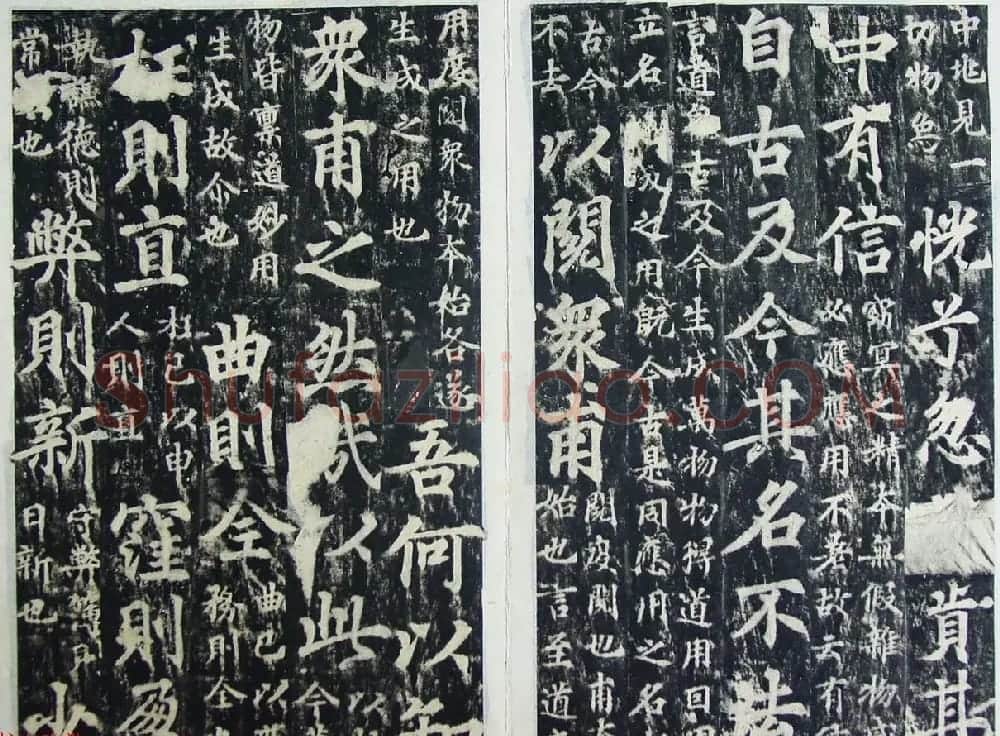 中兆見一
切物爲
恍兮忽 肯其
中有信
窈冥之精本無假雜物
必應應用不差故云有
自古及今其名不去
言道自古及今生成萬物物得道用因
立名 之用既今古是同應用之名
古今
不去
以閱衆甫
閱度閱也甫
始也言至道
用度閱衆物本始各遂
生成之用也
吾何以知
衆甫之然哉以此
物皆禀道妙用
生成故介也
曲則全
曲己以
務則全
枉則直
枉己以申
人則直
窪則盈
執謙德則
常 也
弊則新
守弊薄則
日新也
少
Shufaziliao.COM